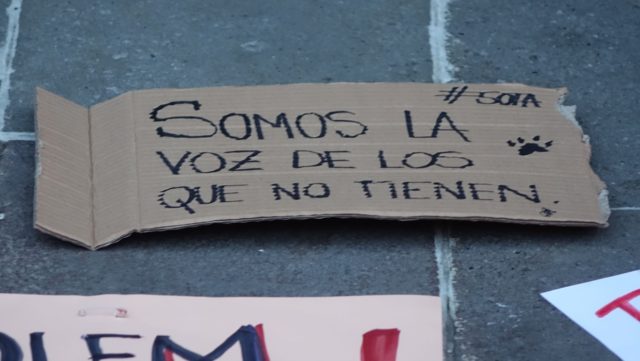 #SOFIA
SOMOS LA
VOZ DE LOS
QUE NO TIENEN.